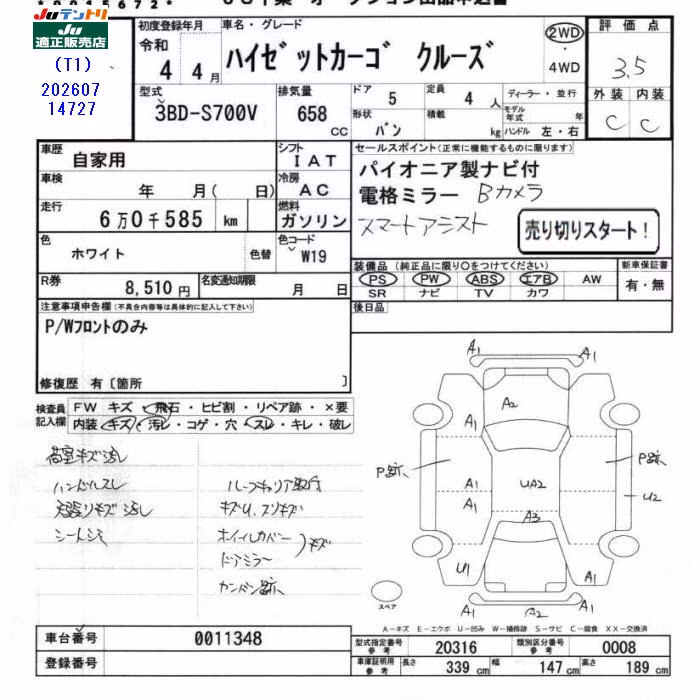 Ju テントリ
Ju 適正販売店
(T1)
202607
14727
初度登録年月
令和
4年 4月
車名・グレード
ハイゼットカーゴ クルーズ
2WD
・
4WD
評価点
3.5
外装 内装
C C
型式
3BD-S700V
排気量
658
CC
ドア 5
形状 バン
定員 4 人
積載 kg
ディーラー・並行
モデル年式 年
ハンドル 左・右
車歴
自家用
シフト
IAT
車検
年 月( 日)
冷房
AC
走行
6万0千585 km
燃料
ガソリン
色
ホワイト
色替
色コード
W19
R券
8,510円
名変通知期限
月 日
セールスポイント(正常に機能するものに限ります)
パイオニア製ナビ付
電格ミラー Bカメラ
スマートアシスト
売り切りスタート!
装備品(純正品に限り○をつけてください)
PS PW ABS エアB AW
SR ナビ TV カワ
新車保証書
有・無
後日品
注意事項申告欄(不具合内容等は具体的に記入して下さい)
P/Wフロントのみ
修復歴 有〔箇所 〕
検査員記入欄
FW キズ・飛石・ヒビ割・リペア跡・×要
内装・キズ・汚レ・コゲ・穴・スレ・キレ・破レ
荷室キズ汚レ
ハンドルスレ
天張リキズ汚レ
シートシミ
ルーフキャリア取付
キズU.スリキズ
ホイールカバー
ドアミラー
キズ
カンバン跡
A1 A1
A2
A1 A1
P跡 P跡
A1 UA2 U2
A1
A3
U1 A1
A1 A2 A1
スペア
A-キズ E-エクボ U-凹み W-補修跡 S-サビ C-腐食 XX-交換済
車台番号
0011348
登録番号
型式指定番号 参考
20316
類別区分番号 参考
0008
車庫証明用 参考
長さ 339 cm
幅 147 cm
高さ 189 cm